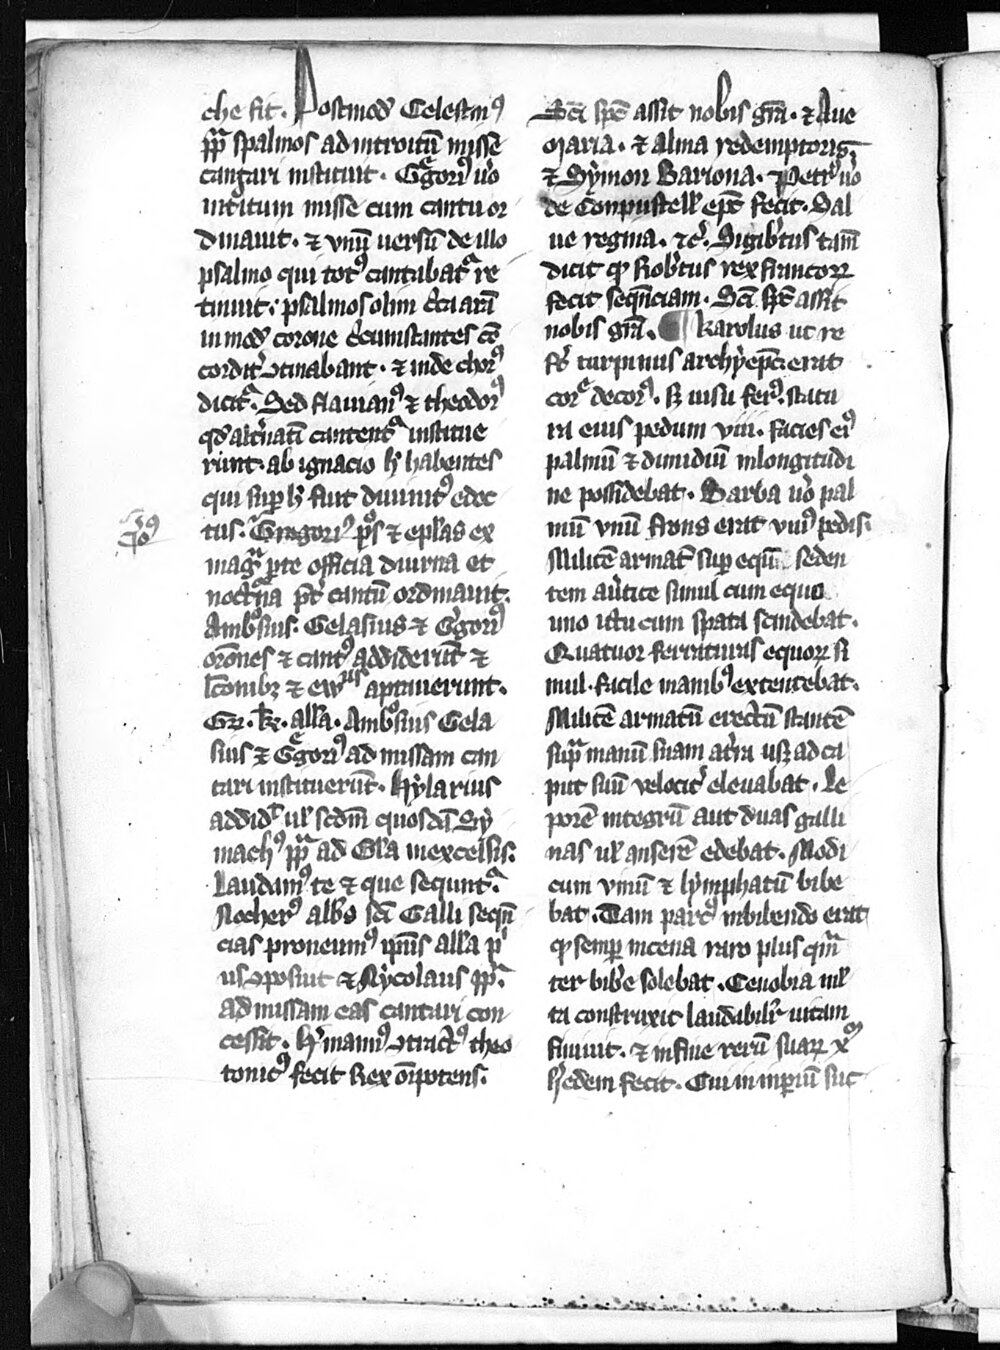 che fit. Postmod Celestin⁹
pp̄ spalmos ad introitū misse
cantari instituit. Gᵉgori⁹ u̾o
introitum misse cum cantu or
dinauit. ⁊ vnū uersū de illo
psalmo qui tot⁹ cantabat᷑ re
tinuit. psalmos olim circa arā
in modū corone c̾cumstantes cō
cordit̾ ꝯtinabant. ⁊ inde chor⁹
dicit᷑. Sed flauian⁹ ⁊ theodor⁹
qd̾ alt̾natī cantent᷑ institue
runt. ab ignacio h̾ habentes
qui sup̄ h̾ fuit diuinit⁹ edoc
tus. Gregori⁹ pꝰs ⁊ ep̄las ex
magᵃ p̱te officia diurna et
noct̾na pt̾ cantū ordinauit.
Ambᵒsius. Gelasius ⁊ G̾gori⁹
orōnes ⁊ cant⁹ addiderūt ⁊
lc̄onibꝫ ⁊ ewᵘⁱˢ aptauerunt.
Gr̄. tr̄. all̾a. Ambᵒsius Gela
sius ⁊ Gᵉgori⁹ ad missam can
tari instituerūt. Hẏlarius
addidᵗ ul̾ scd̄m quosdā Sẏ
mach⁹ pp̄ ad Gl̾a inexcelsis.
Laudam⁹ te ⁊ que sequnt᷑.
Nocher⁹ abb̾s sc̄i Galli sequē
cias pro neum⁹ ip̄ius all̾a pⁱ
us ꝯposuit ⁊ Nẏcolaus pp̄.
ad missam eas cantari con
cessit. H̾mann⁹ ꝯtract⁹ theo
tonic⁹ fecit Rex ōīpotens.
Sc̄i spc̄ assit nobis grā. ⁊ Aue
Maria. ⁊ Alma redemptoris.
⁊ Sẏmon Bariona. Petr⁹ u̾o
de Conpustell̾ ep̄c fecit. Sal
ue regina. ⁊c̾. Sigib̾tus tam̄
dicit ꝙ Rob̾tus rex francoꝝ
fecit sequēciam. Sc̄i spc̄ assit
nobis grā. ¶ Karolus ut re
fert turpinus archẏep̄c. erat
corᵉ decor⁹. sꝫ uisu fer⁹. statu
ra eius pedum viii. facies ei⁹
palmū ⁊ dimidiū in longitudi
ne possidebat. Barba u̾o pal
mū vnū frons erat vni⁹ pedis.
Militē armat̄ sup̄ equū seden
tem au̾tice simul cum equo
uno ictu cum spata scindebat.
Quatuor ferraturas equoꝝ si
mul. facile manibꝰ extentebat.
Militē armatū erectū stantē
sup̄ manū suam a t̾ra usqꝫ ad ca
put suū velocit̾ eleuabat. Le
porē integrū aut duas galli
nas ul̾ anserē edebat. Modi
cum vinū ⁊ lẏmphatū bibe
bat. Tam parc⁹ in bibendo erat
ꝙ semp̄ in cena raro plus qᵃm
ter bib̾e solebat. Cenobia ml̾
ta construxit laudabilit̾ uitam
finiuit. ⁊ in fine rerū suaꝝ xᵖᵐ
h̾edem fecit. Cui in inperiū suc